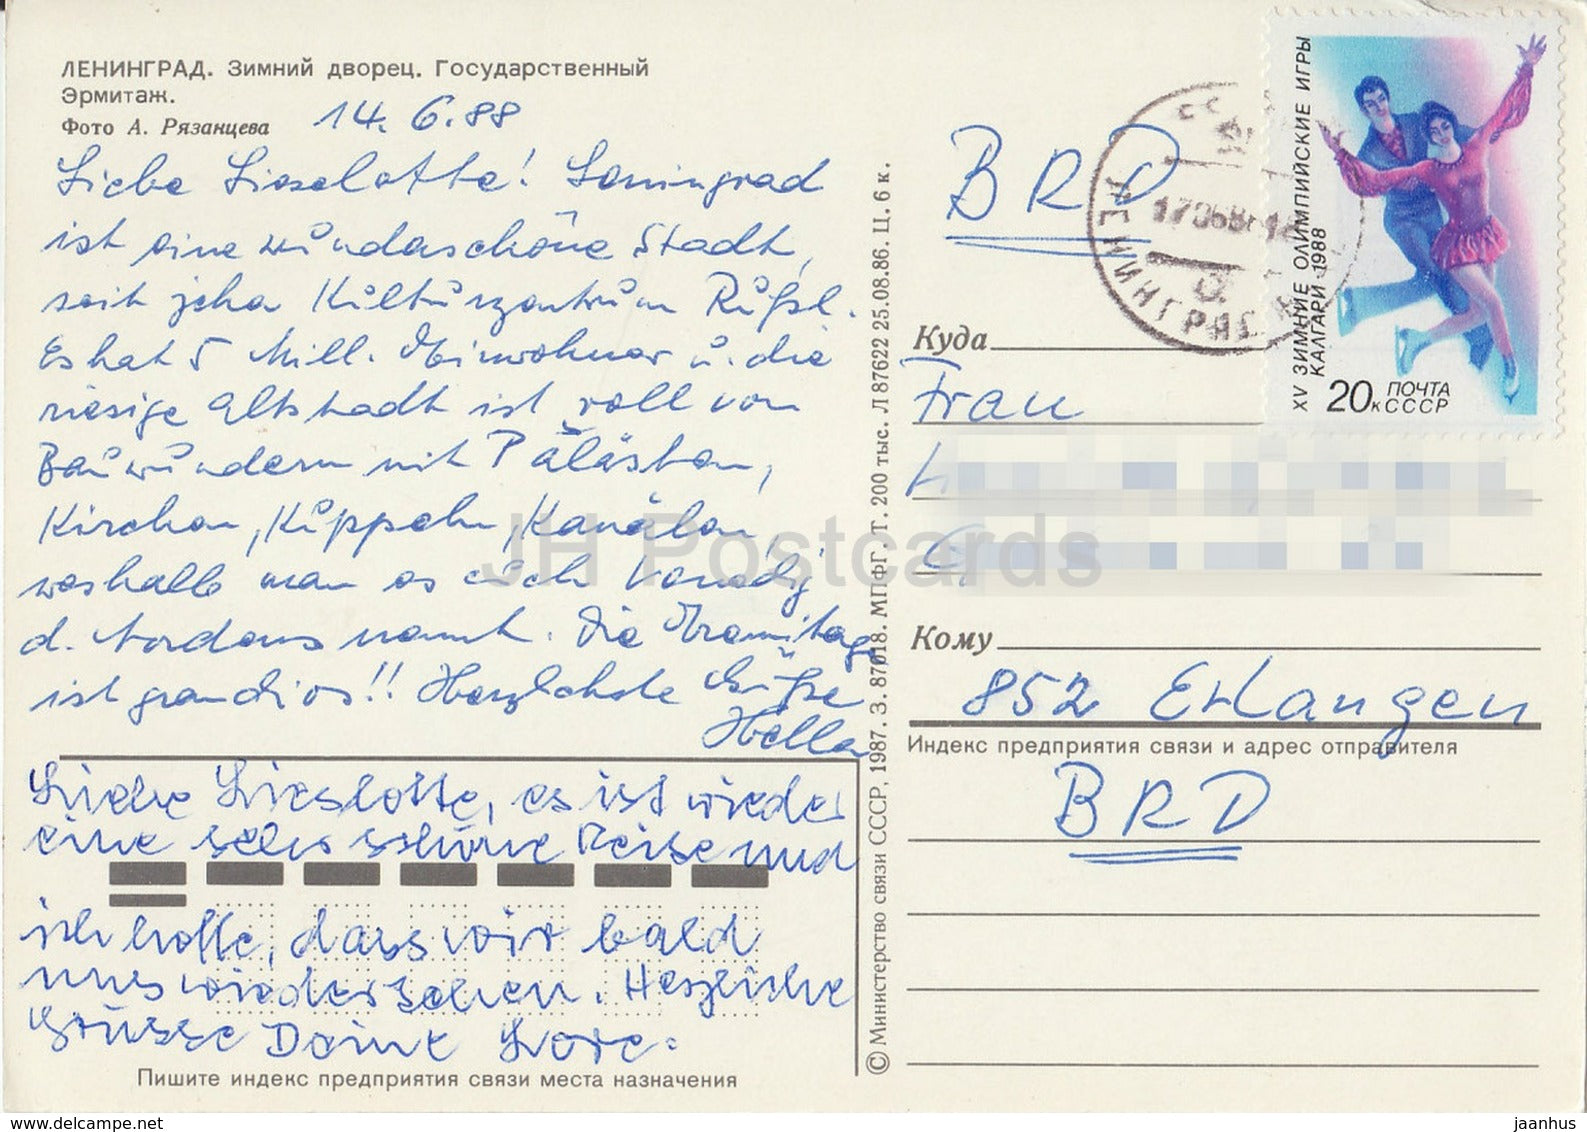 ЛЕНИНГРАД. Зимний дворец. Государственный
Эрмитаж.
Фото А. Рязанцева
14. 6.88
Liebe Lieselotte! Leningrad
ist eine wunderschöne Stadt,
seit jeher Kulturzentrum Rußl.
Es hat 5 Mill. Einwohner u. die
riesige Altstadt ist voll von
Bauwundern mit Palästen,
Kirchen, Kuppeln, Kanälen,
weshalb man es auch Venedig
d. Nordens nennt. Die Eremitage
ist grandios!! Herzlichste Grüße
Hella
Liebe Lieselotte, es ist wieder
eine sehr schöne Reise und
ich hoffe, dass wir bald
uns wiedersehen. Herzliche
Grüsse Deine Lore.
Пишите индекс предприятия связи места назначения
© Министерство связи СССР, 1987. З. 87018. МПФГ. Т. 200 тыс. Л 87622 25.08.86. Ц. 6 к.
BRD
ЛЕНИНГРАД
170688
XV ЗИМНИЕ ОЛИМПИЙСКИЕ ИГРЫ
КАЛГАРИ·1988
20к ПОЧТА
СССР
Куда
Frau
Кому
852 Erlangen
Индекс предприятия связи и адрес отправителя
BRD
JH Postcards
www.delcampe.net
jaanhus